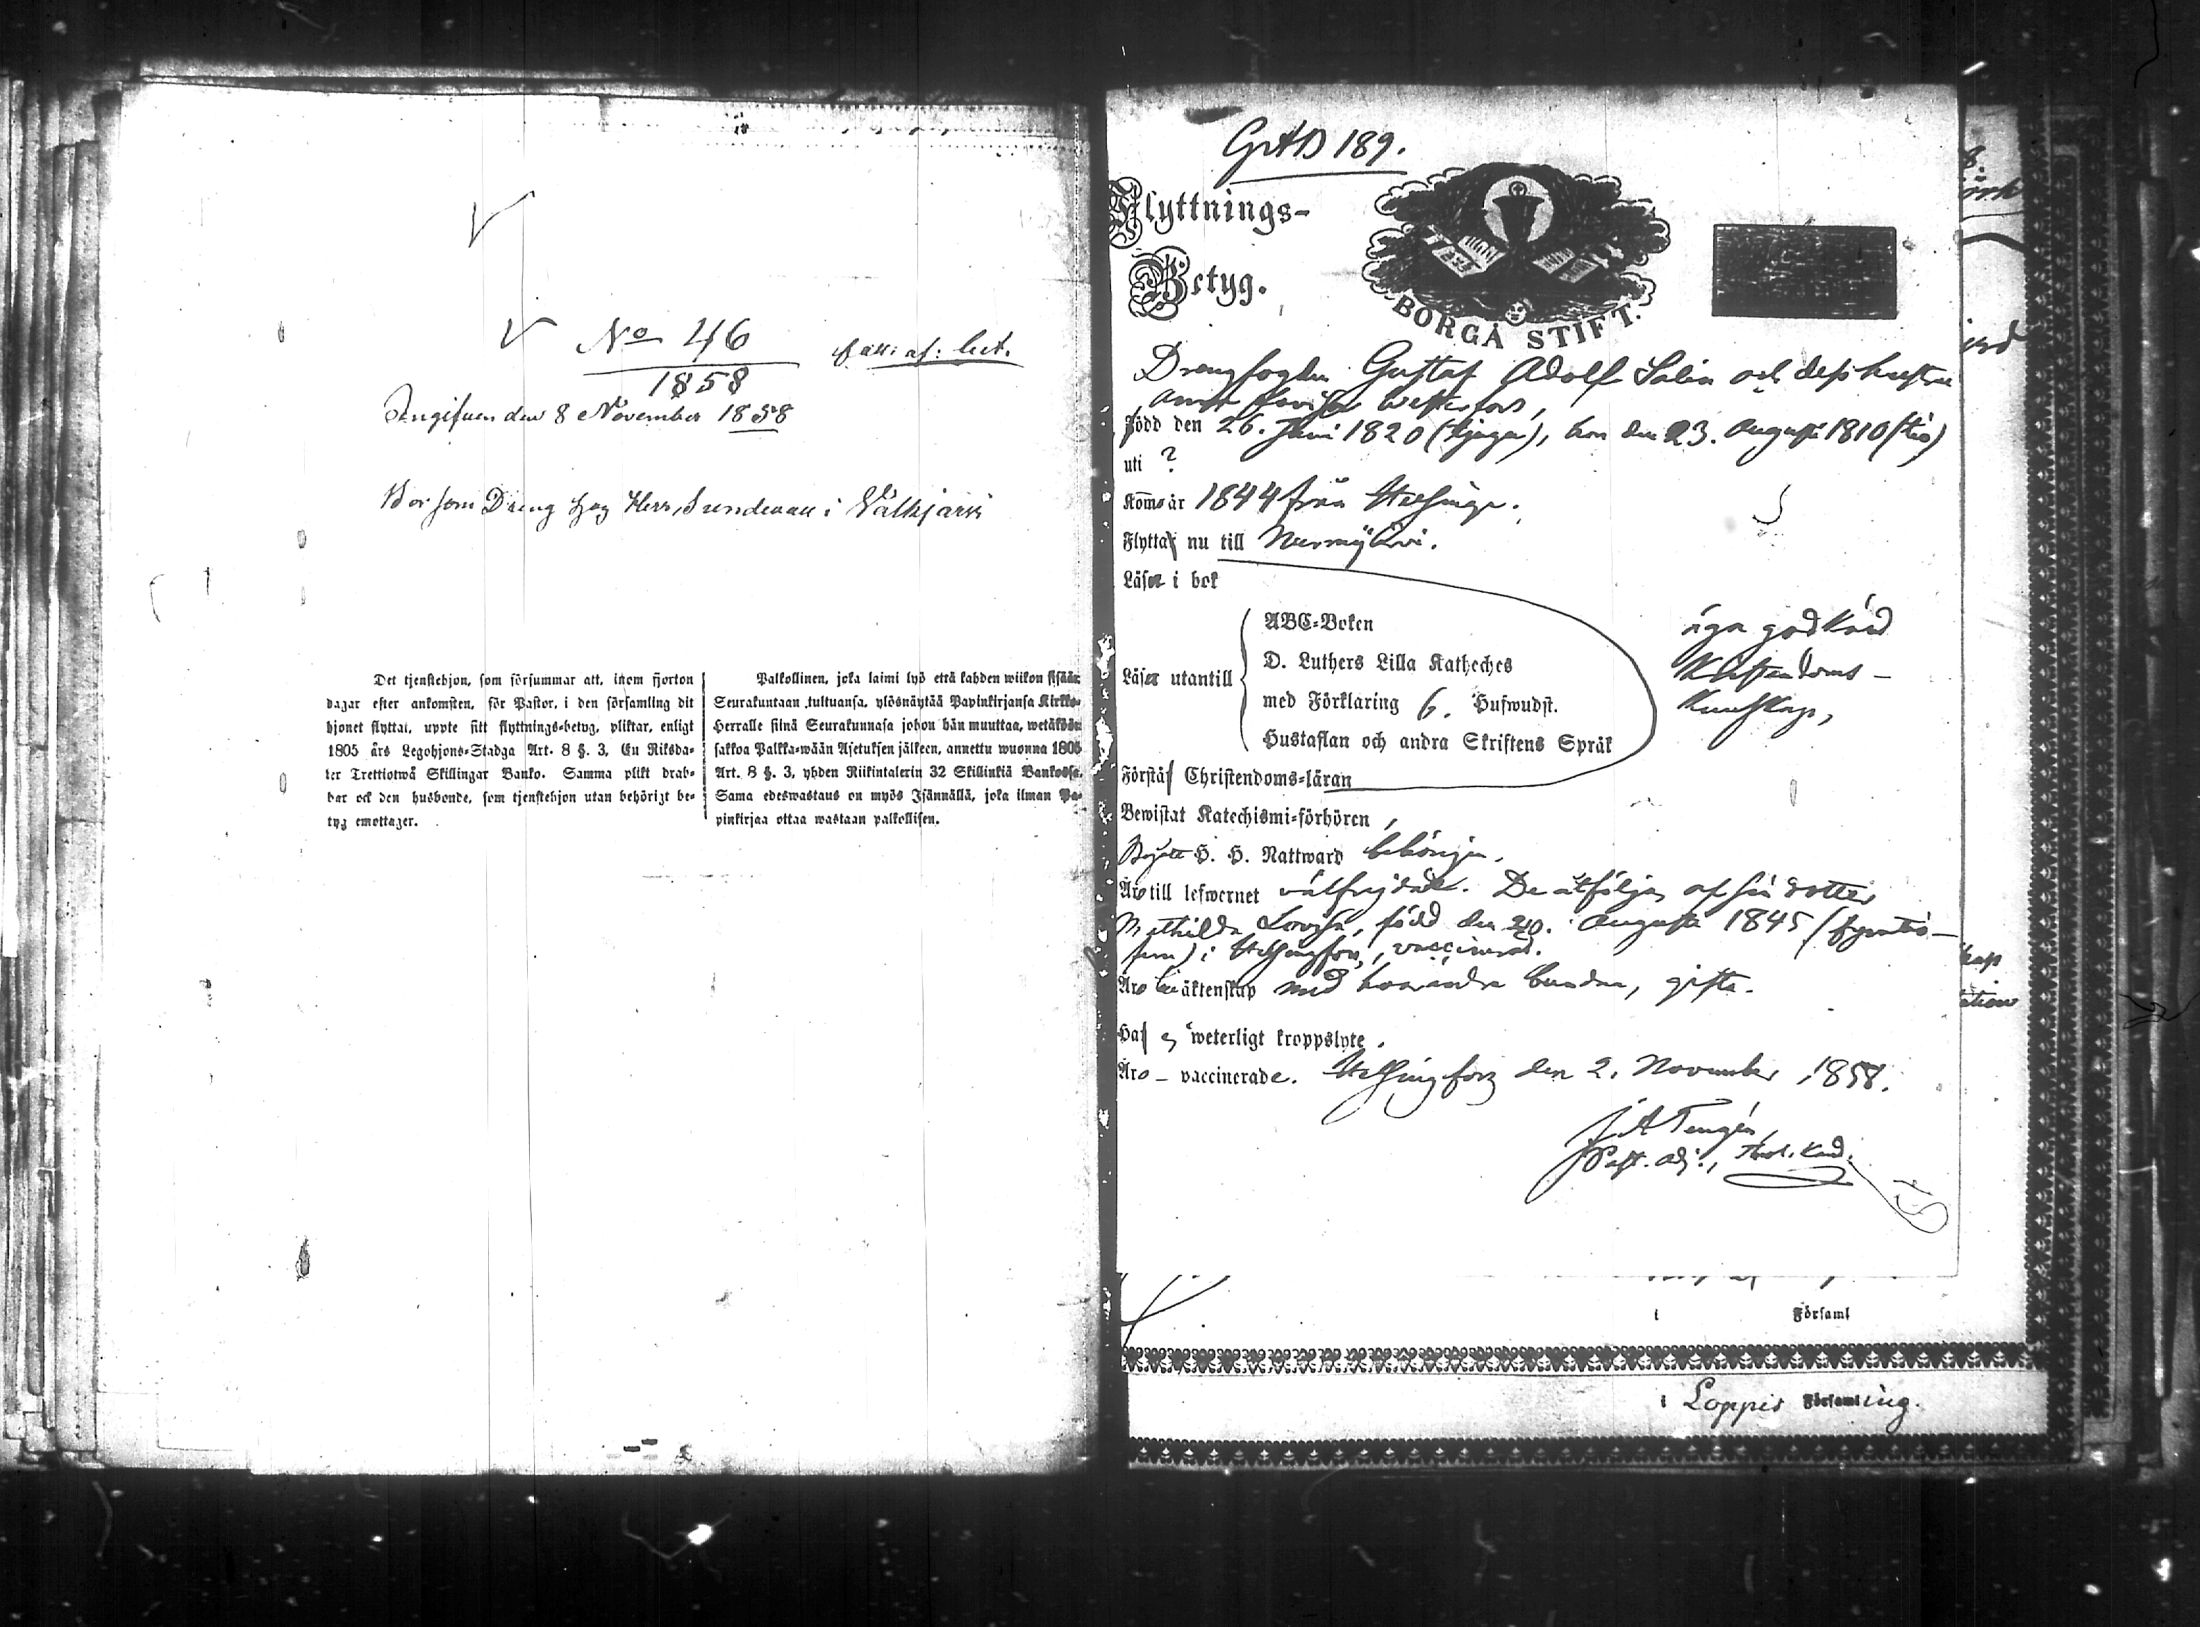 No 46
1858
Ingifven den 8 November 1858
Bor som Dräng hos Herr Sundman i Valkjärvi
Det tjenstehjon, som försummar att, inom fjorton
dagar efter ankomsten, för Pastor, i den församling dit
hjonet flyttat, uppte sitt flyttnings-betyg, pliktar, enligt
1805 års Legohjons-Stadga Art. 8 §. 3, En Riksda-
ler Trettiotwå Skillingar Banko. Samma plikt drab-
bar ock den husbonde, som tjenstehjon utan behörigt be-
tyg emottager.
Palkollinen, joka laimi lyö että kahden wiikon sisään
Seurakuntaan tultuansa, ylösnäytää Papinkirjansa Kirkko-
Herralle siinä Seurakunnasa johon hän muuttaa, wetäköön
sakkoa Palkka-wään Asetuksen jälkeen, annettu wuonna 1805
Art. 8 §. 3, yhden Riikintalerin 32 Skillinkiä Bankossa.
Sama edeswastaus on myös Isännällä, joka ilman Pa-
pinkirjaa ottaa wastaan palkollisen.
GAB 189.
Flyttnings-
Betyg.
BORGÅ STIFT.
Drengfogden Gustaf Adolf Salin och dess hustru
Anna Lovisa Westerfors,
Född den 26. Juni 1820 (tjugu), hon den 23. Augusti 1810 (tio)
uti ?
Koms år 1844 från Helsinge.
Flytta nu till Nurmijärvi.
Läsa i bok
Läsa utantill
ABC-Boken
D. Luthers Lilla Katheches
med Förklaring 6. Hufwudst.
Hustaflan och andra Skriftens Språk
äga godkänd
Kristendoms-
Kunskap,
Förstå Christendoms-läran
Bewistat Katechismi-förhören,
Begått H. H. Nattward behörigen.
Äro till lefwernet välfrejdade. De åtföljas af sin dotter
Mathilda Lovisa, född den 20. Augusti 1845 (fyratio-
fem) i Helsingfors, vaccinerad.
Äro till äktenskap med hvarandra bundna, gifta.
Haf ej weterligt kroppslyte.
Äro - vaccinerade. Helsingfors den 2. November 1858.
Past. adj., Theol. Kand.
i Församl
i Loppis Församling.